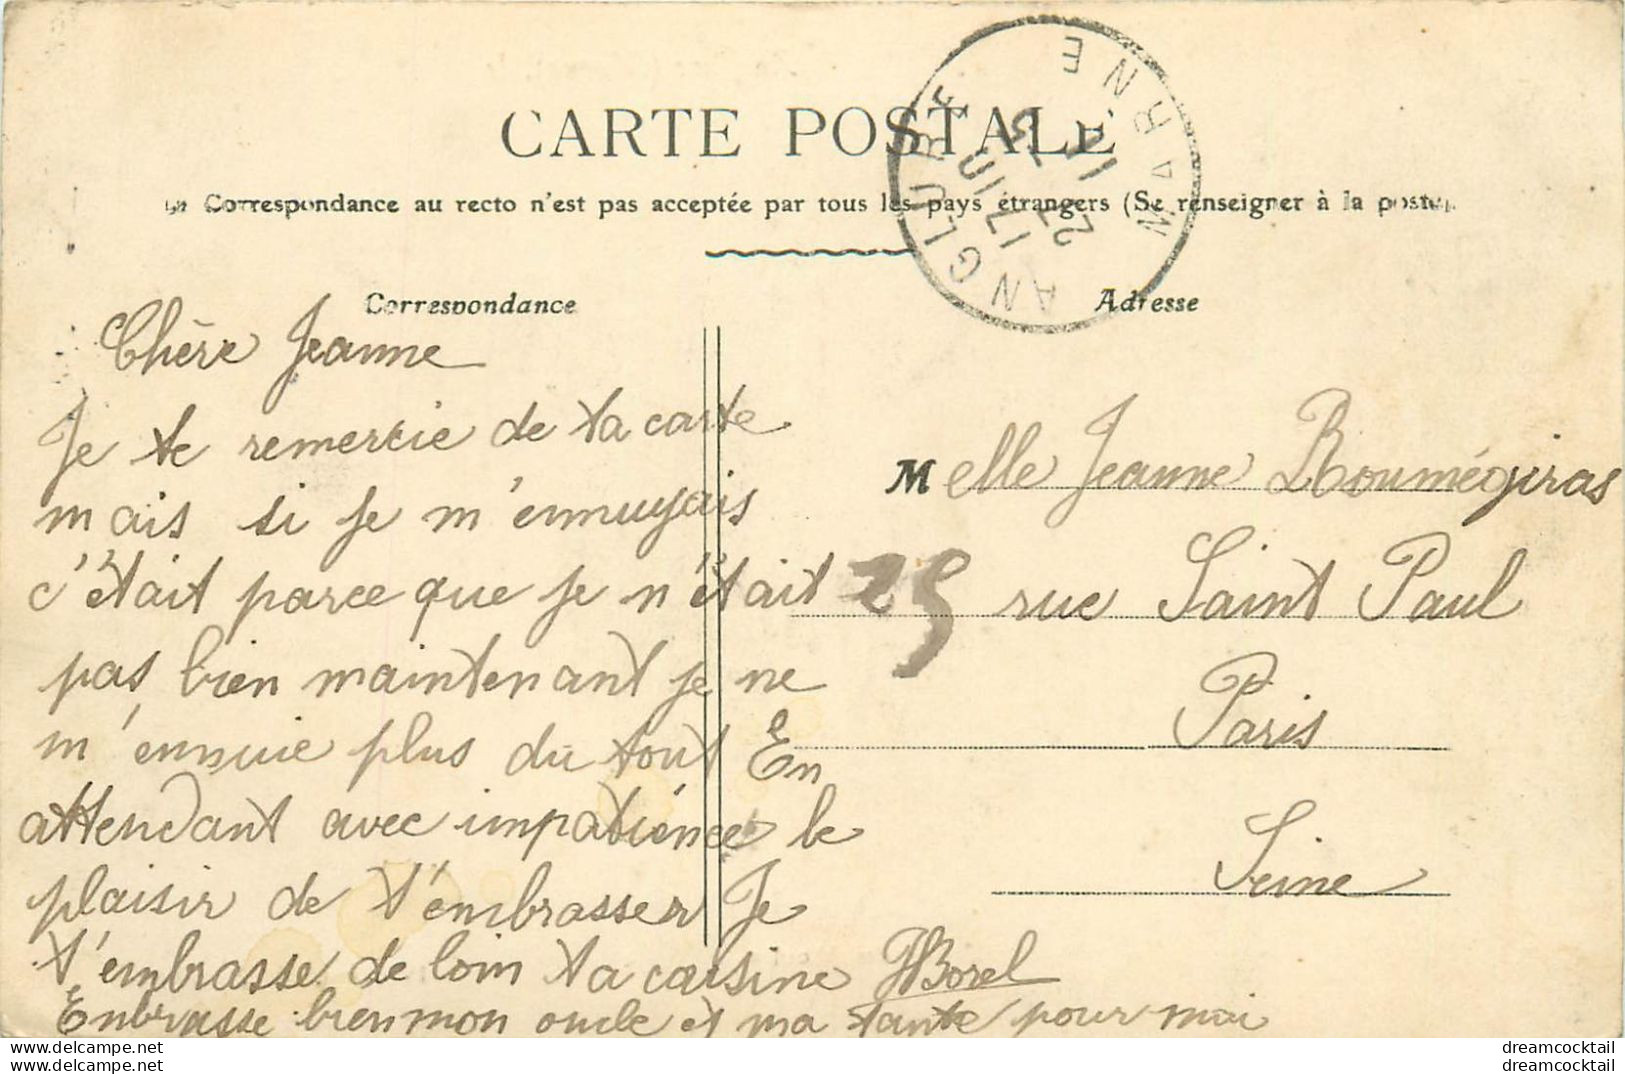 CARTE POSTALE
Correspondance au recto n'est pas acceptée par tous les pays étrangers (Se renseigner à la poste)
ANGLURE MARNE
17 JUIN
Correspondance
Adresse
Chère Jeanne
Je te remercie de ta carte
mais si je m'ennuyais
c'était parce que je n'était
pas bien maintenant je ne
m'ennuie plus du tout En
attendant avec impatience le
plaisir de t'embrasser Je
t'embrasse de loin ta cousine Borel
Embrasse bien mon oncle et ma tante pour moi
Melle Jeanne Roumégiras
25 rue Saint Paul
Paris
Seine
dreamcocktail
dreamcocktail
dreamcocktail
dreamcocktail